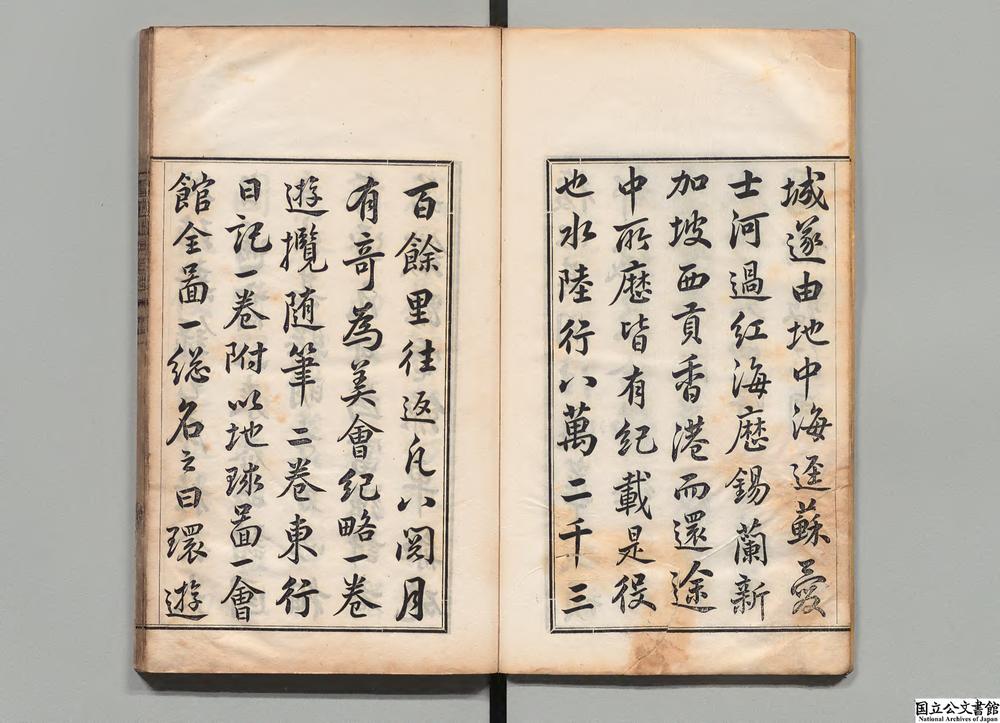 城遂由地中海逕蘇爱
士河過紅海歷錫蘭新
加坡西貢香港而還途
中所歷皆有紀載是役
也水陸行八萬二千三
百餘里往返凡八閱月
有奇為美會紀略一卷
遊攬隨筆二卷東行
日記一卷附以地球啚一會
館全啚一總名之曰環遊
国立公文書館
National Archives of Japan